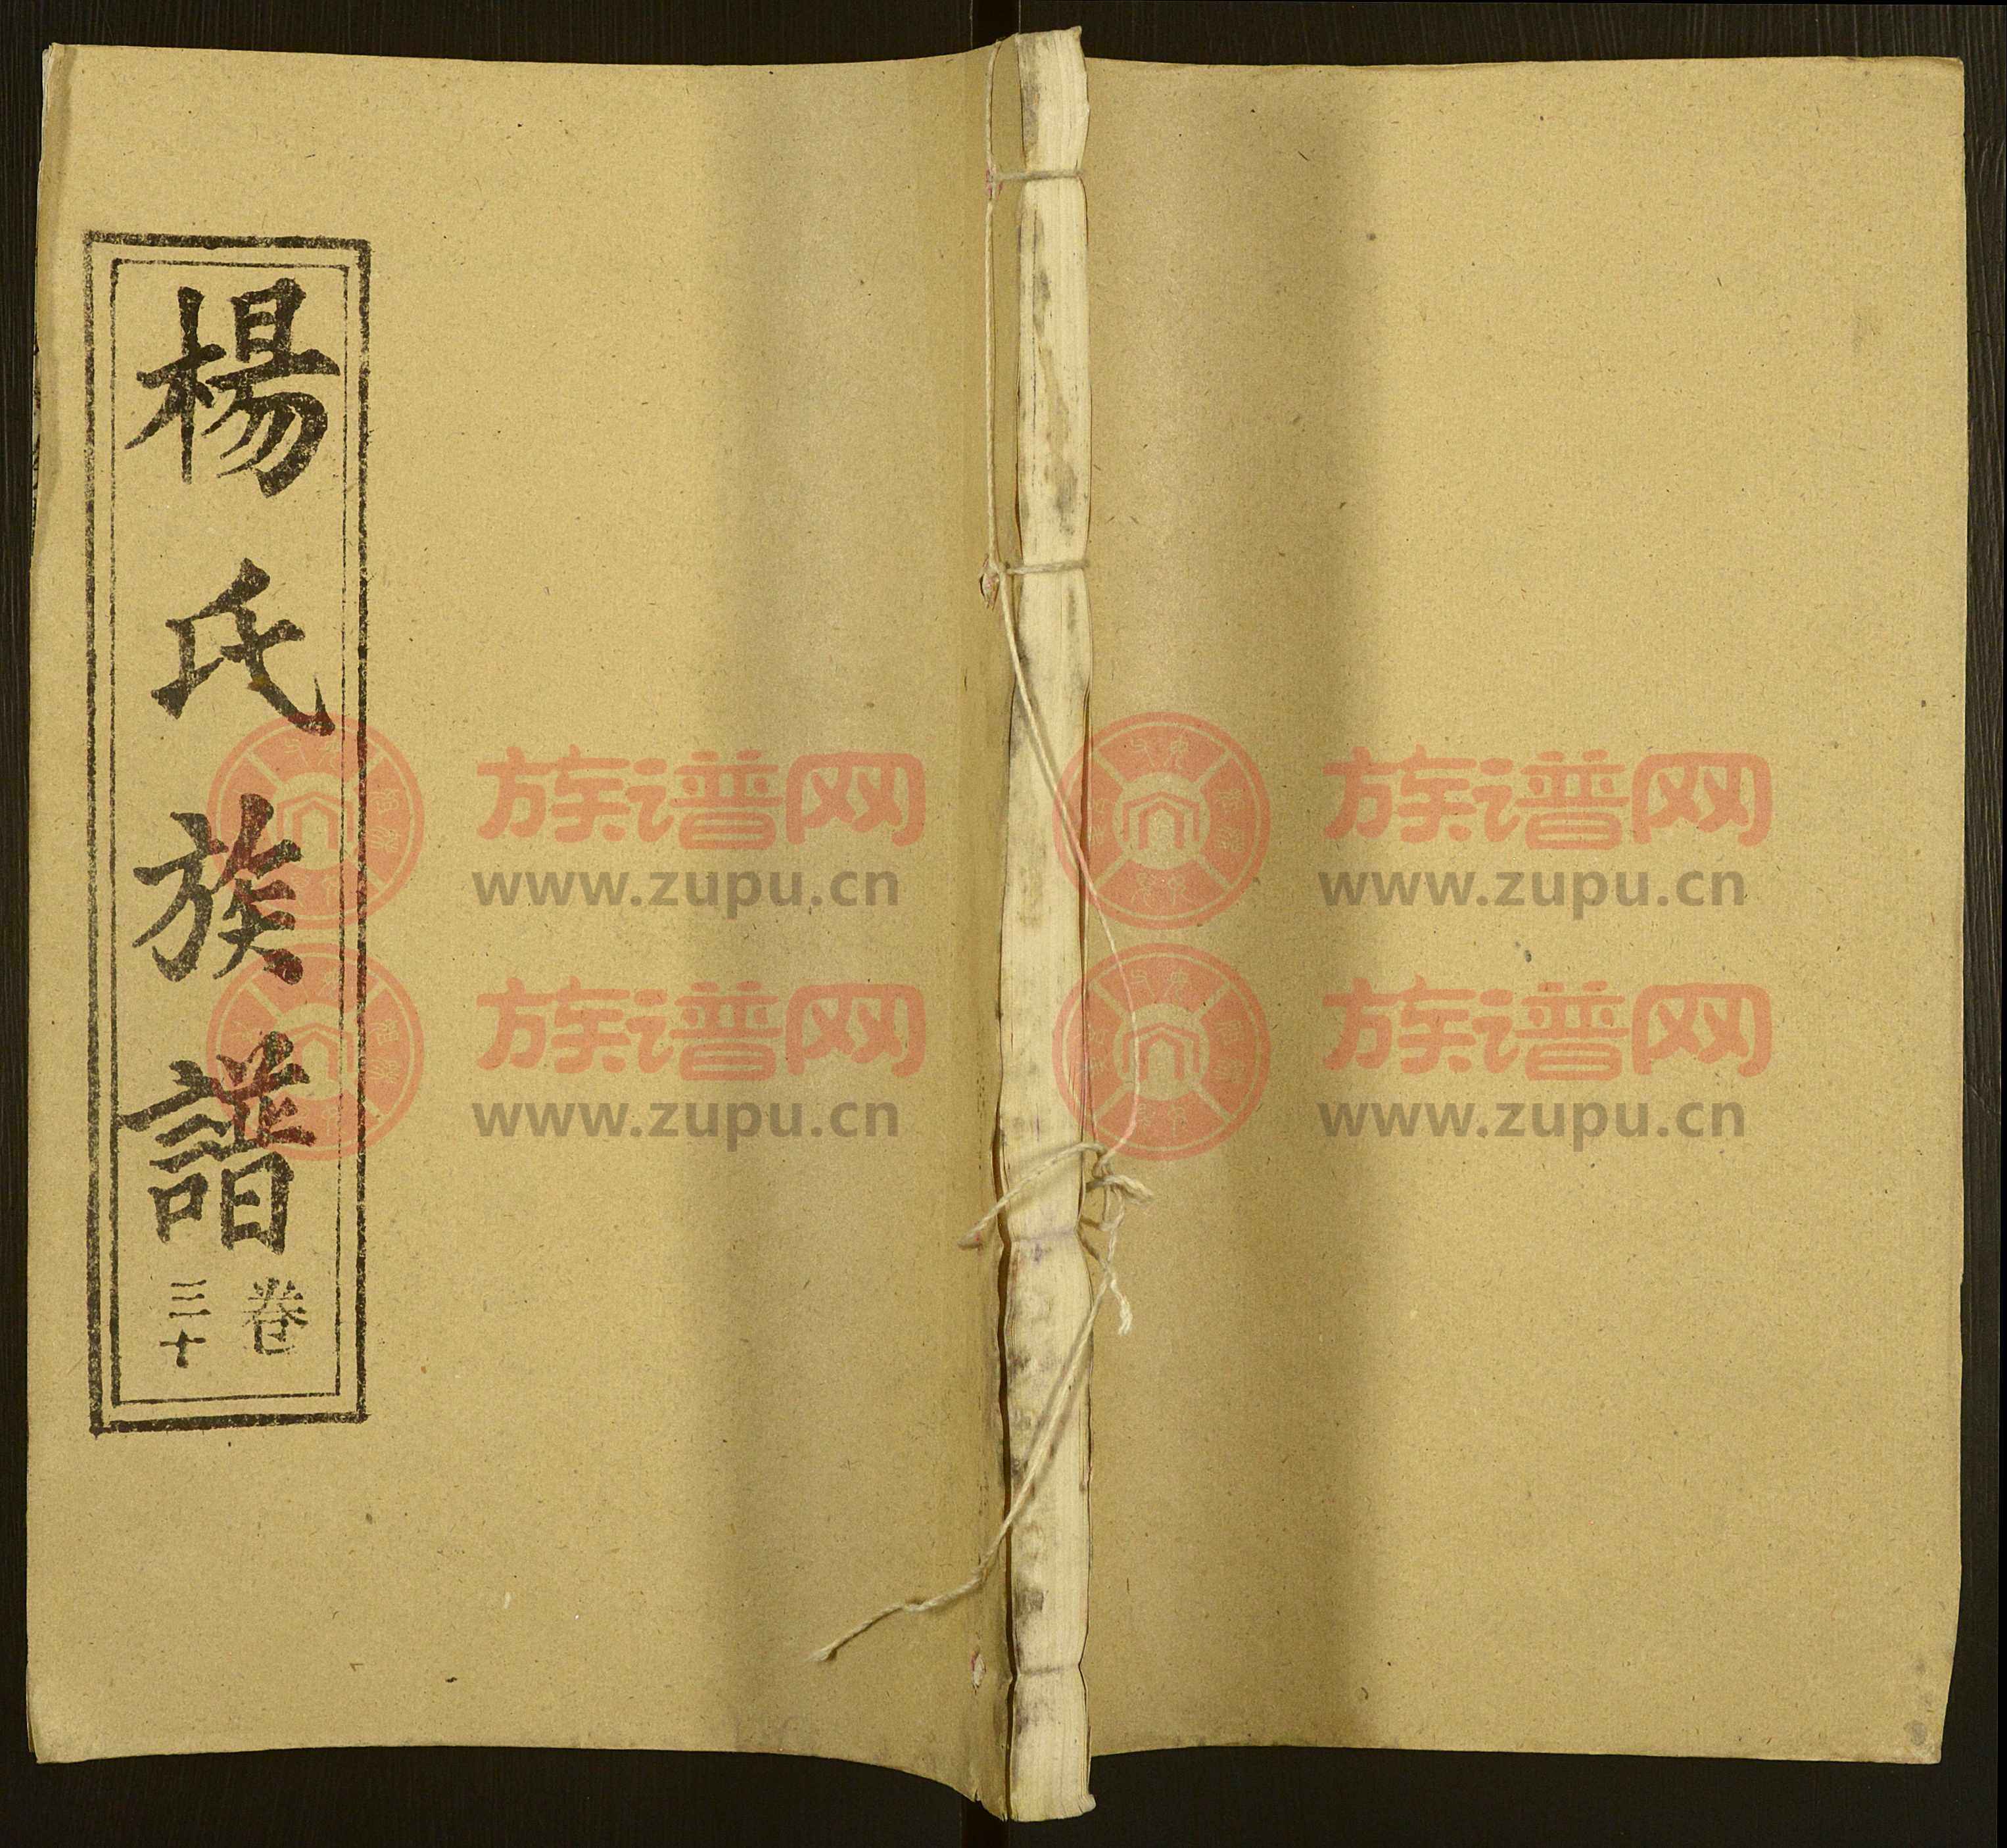 楊氏族譜
卷
三十
族谱网
www.zupu.cn
族谱网
www.zupu.cn
族谱网
www.zupu.cn
族谱网
www.zupu.cn